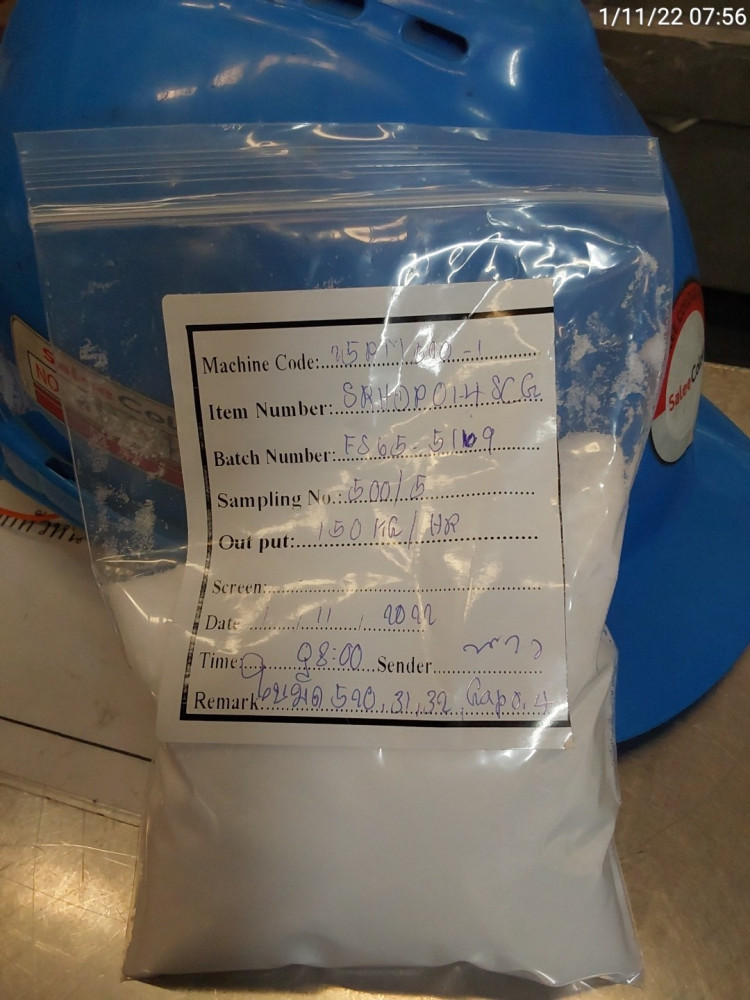 1/11/22 07:56
Machine Code:
Item Number: SRHDP014SCG
Batch Number: FS65-5169
Sampling No.: 500/5
Out put: 150 KG/HR
Screen:
Date 1 / 11 / 2022
Time: 08:00 Sender
Remark: ใบมีด 520, 31, 32, Gap 0.4
NO
Salee
Salee